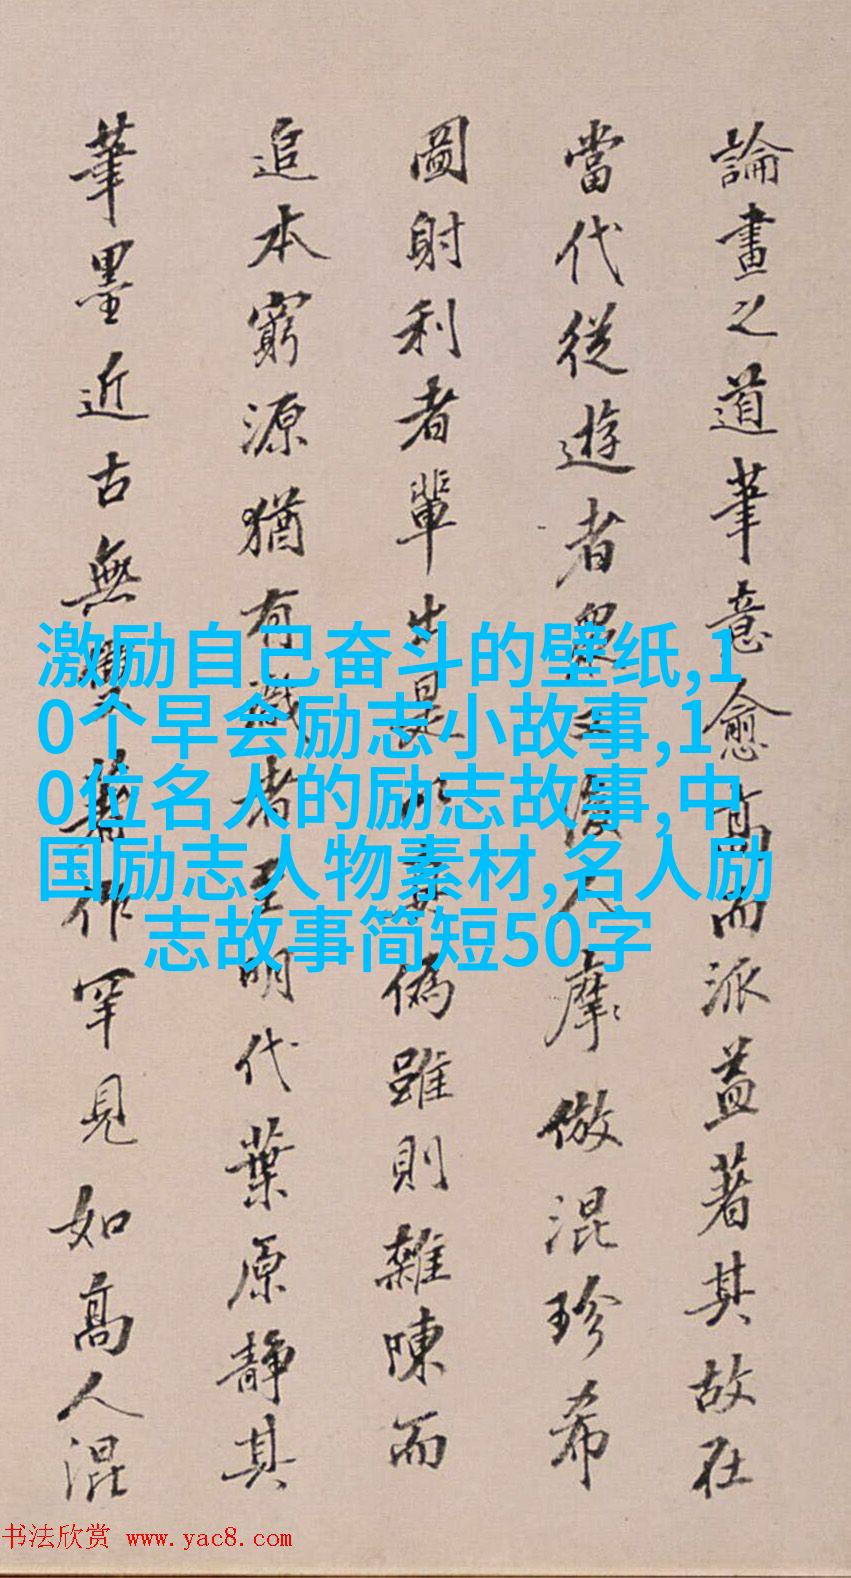 論畫之道筆意愈高而派益著其故在
當代從遊者眾後人摩倣混珍希
圖射利者輩出是以真偽雖則雜陳而
追本窮源猶有識者至明代葉原靜其
筆墨近古無著作罕見如高人混
激励自己奋斗的壁纸,1
0个早会励志小故事,1
0位名人的励志故事,中
国励志人物素材,名人励
志故事简短50字
书法欣赏 www.yac8.com